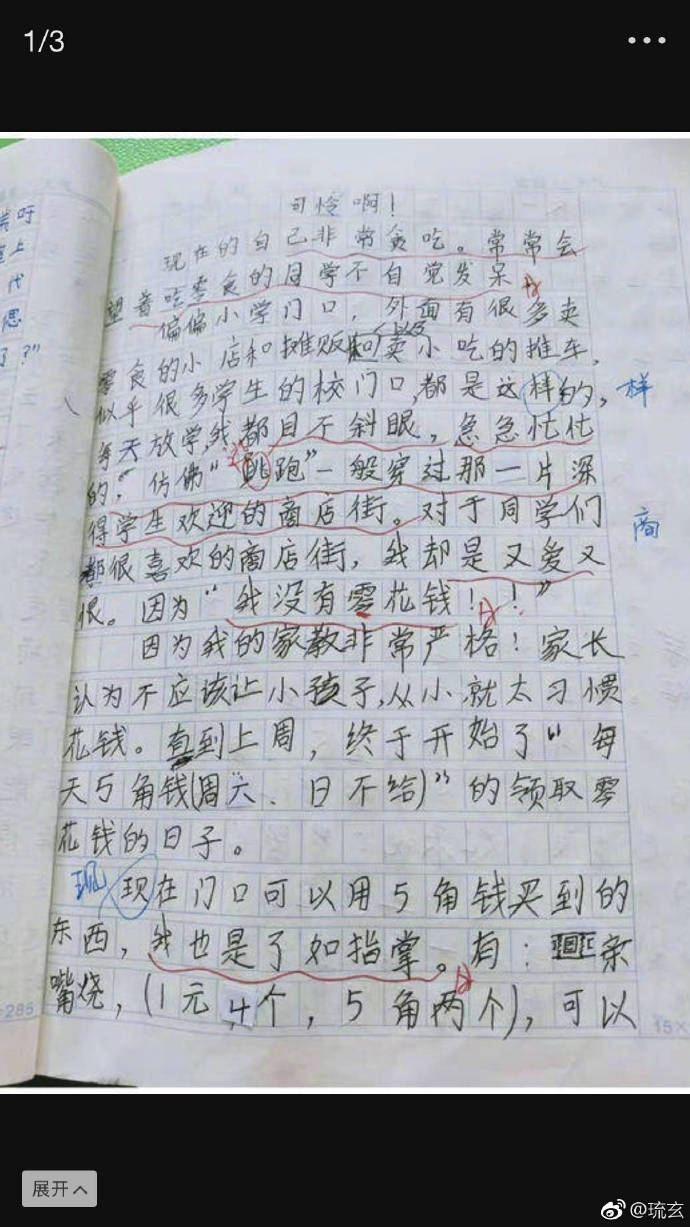 1/3
可怜啊！
现在的自己非常贪吃。常常会
望着吃零食的同学不自觉发呆
偏偏小学门口，外面有很多卖
零食的小店和摊贩和卖小吃的推车，
似乎很多学生的校门口，都是这样的，
样
每天放学，我都目不斜眼，急急忙忙
的，仿佛“跳跑”一般穿过那一片深
得学生欢迎的商店街。对于同学们
商
都很喜欢的商店街，我却是又爱又
恨。因为“我没有零花钱！！”
因为我的家教非常严格！家长
认为不应该让小孩子，从小就太习惯
花钱。直到上周，终于开始了“每
天5角钱(周六、日不给)”的领取零
花钱的日子。
现
现在门口可以用5角钱买到的
东西，我也是了如指掌。有：亲
嘴烧，(1元4个，5角两个)，可以
吁
上
代
思
了？”
285
15×
展开
琉玄